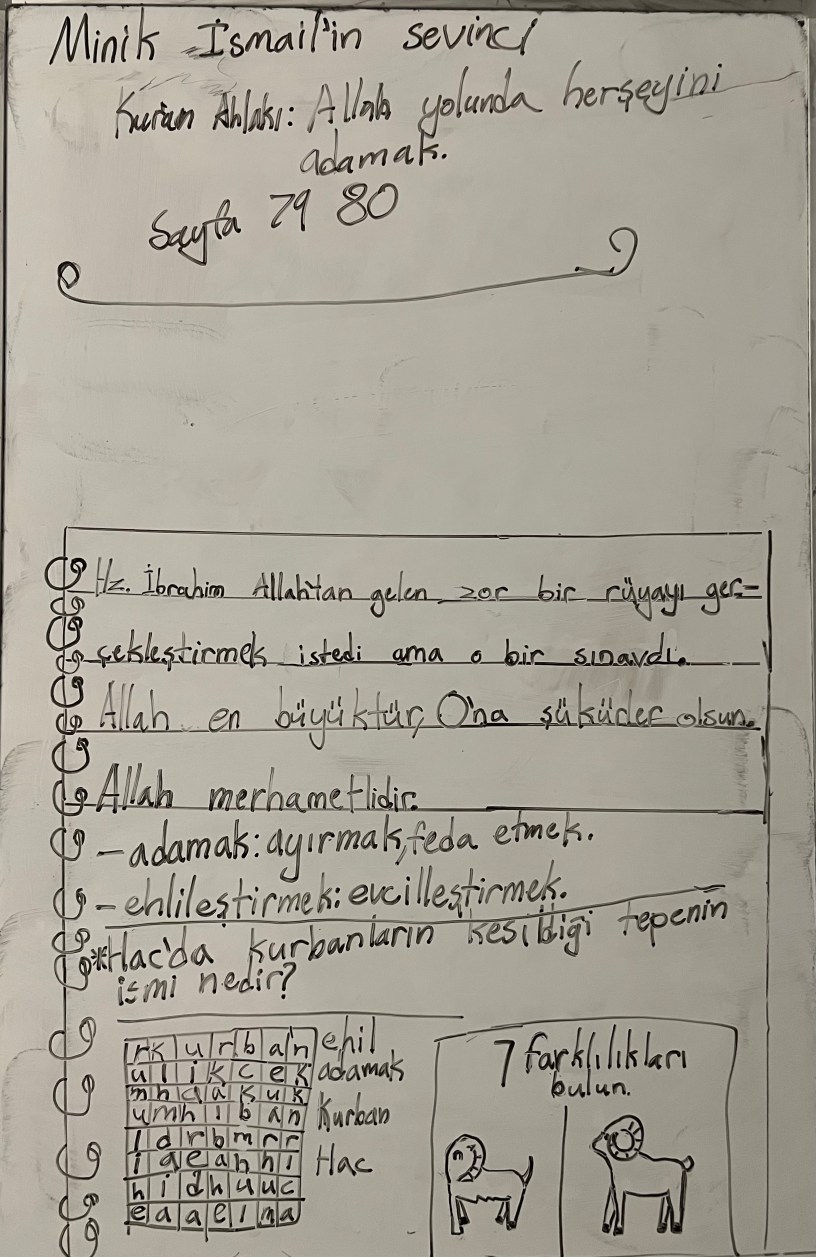 Minik İsmail'in sevinci
Kuran Ahlakı: Allah yolunda herşeyini
adamak.
Sayfa 79 80
Hz. İbrahim Allah'tan gelen zor bir rüyayı ger-
çekleştirmek istedi ama o bir sınavdı.
Allah en büyüktür, O'na şüküdler olsun.
Allah merhametlidir.
-adamak: ayırmak, feda etmek.
-ehlileştirmek: evcilleştirmek.
*Hac'da kurbanların kesildiği tepenin
ismi nedir?
r k u r b a n ehil
u l i k c e k adamak
m h d a k u k
u m h i b a n Kurban
i d r b m r r
i a e a h h i Hac
h i d h u u c
e a a e l m a
7 farklılıkları
bulun.